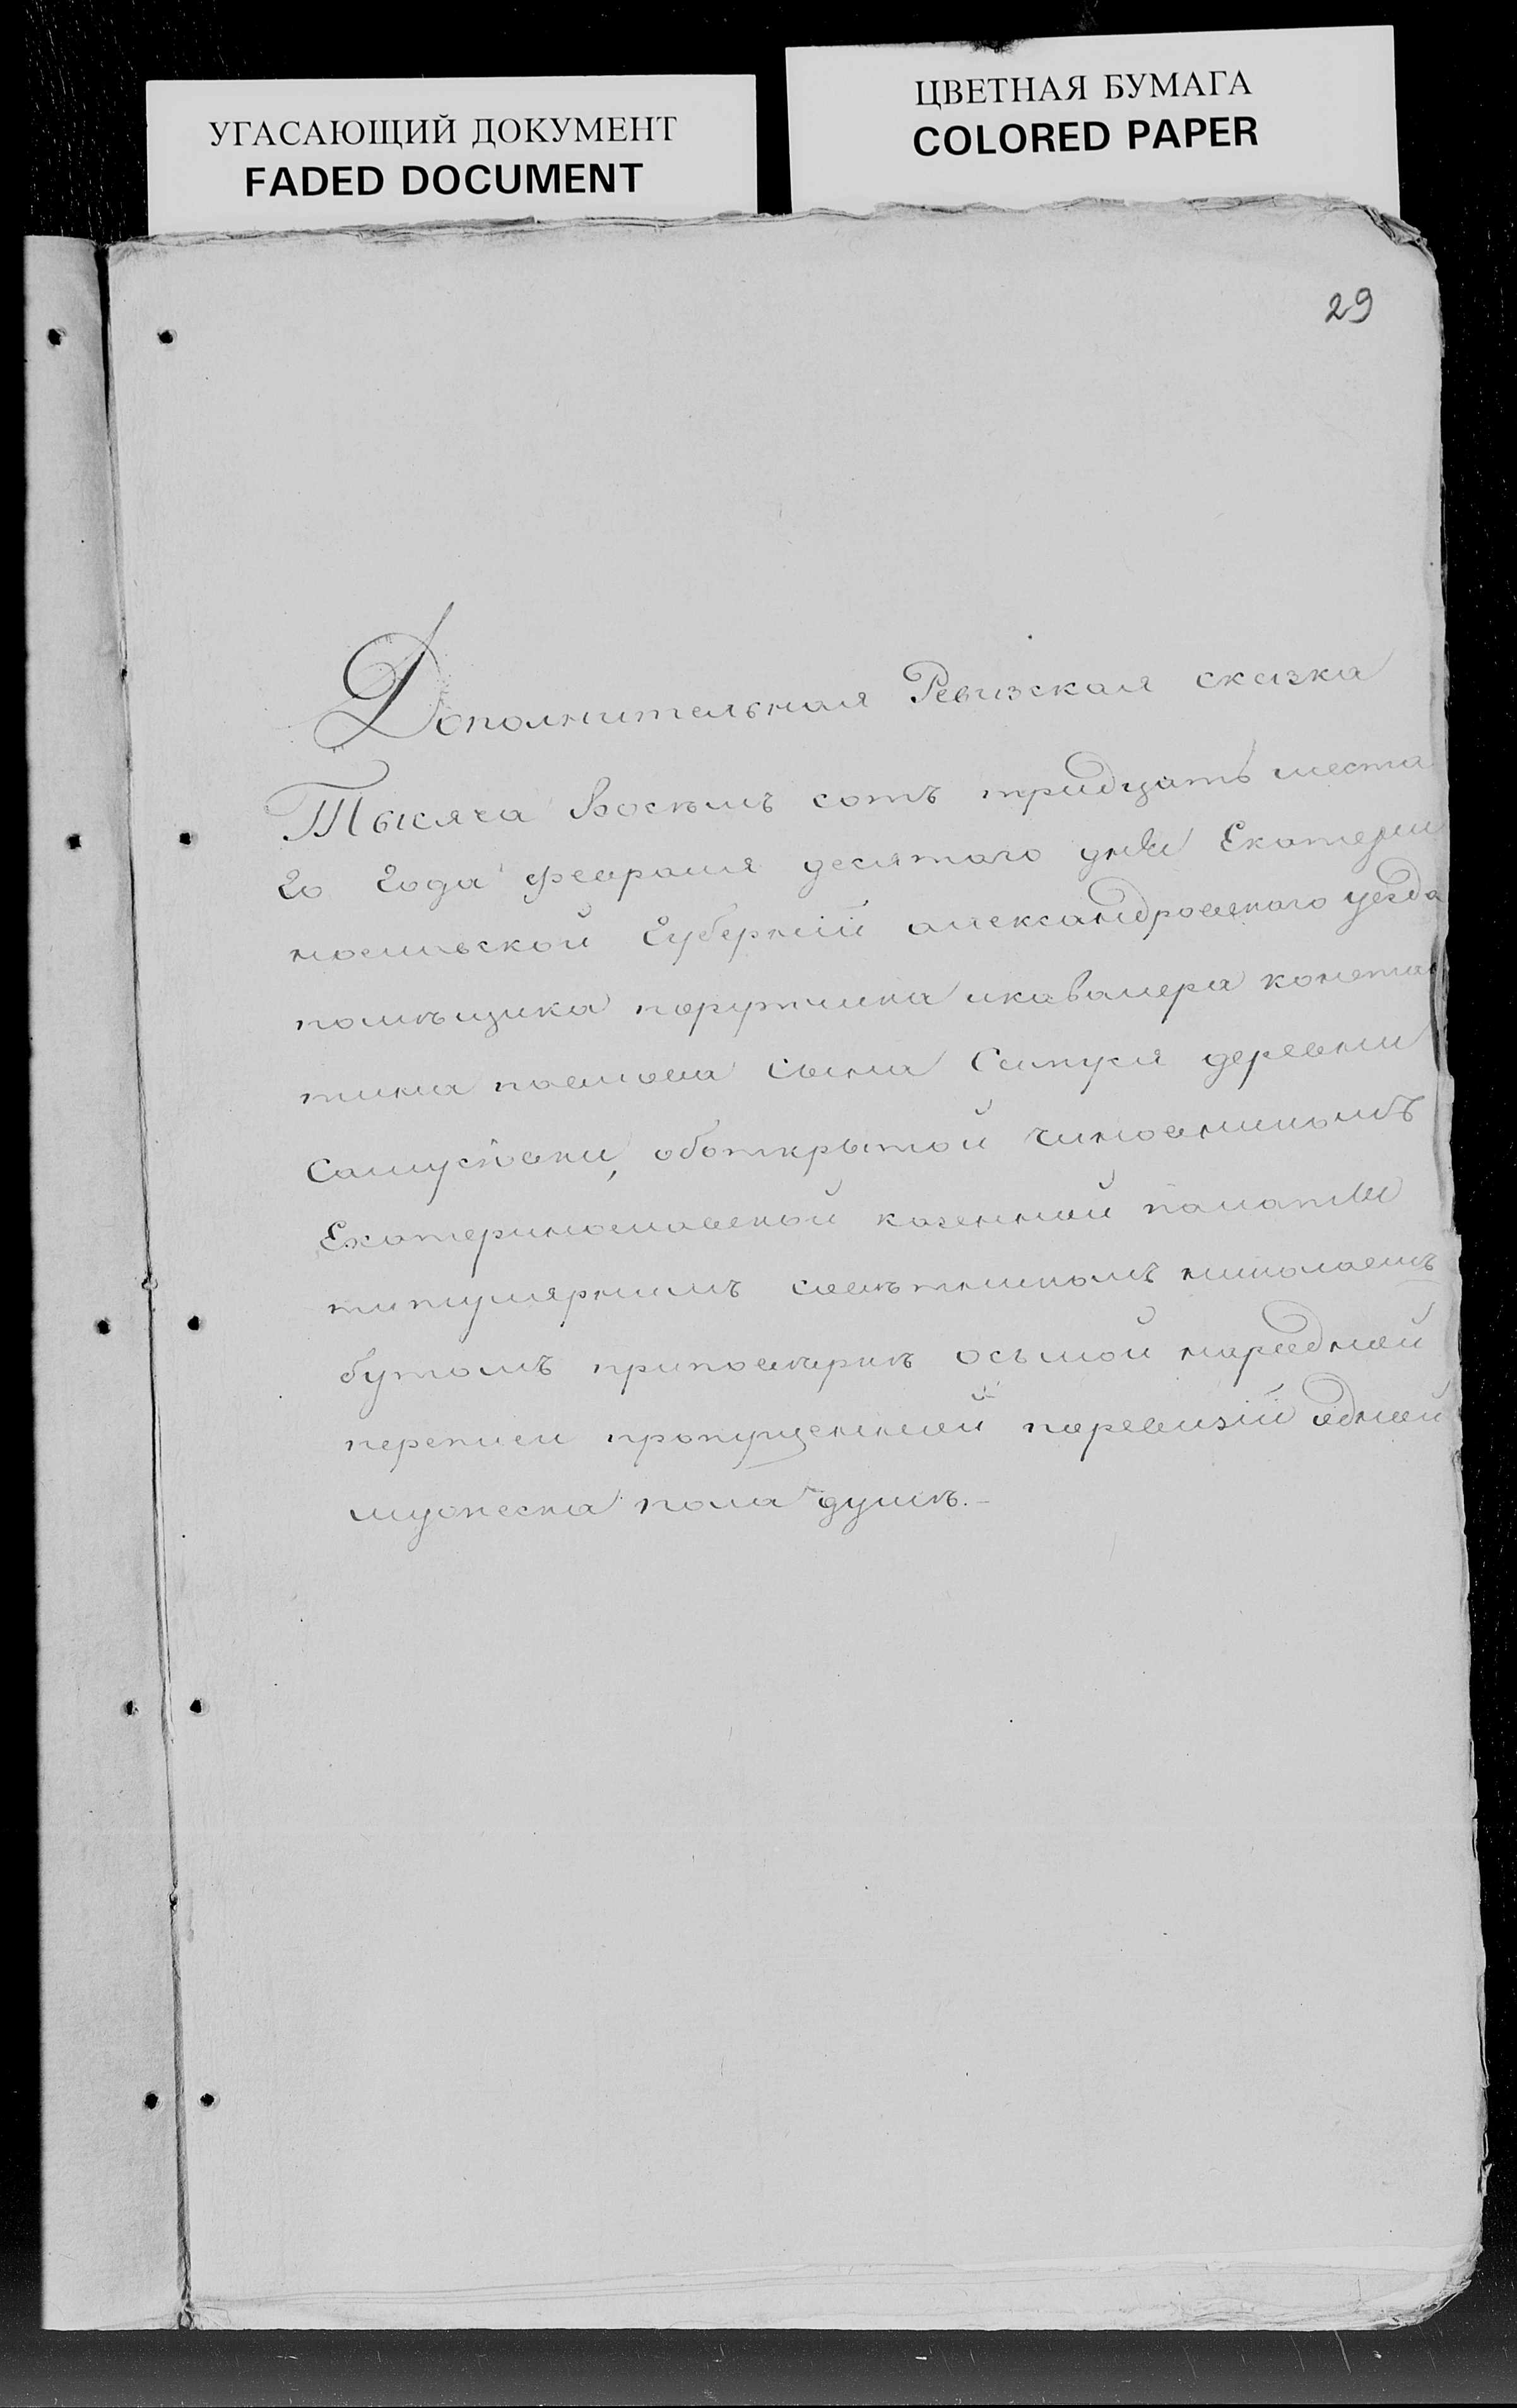 УГАСАЮЩИЙ ДОКУМЕНТ
FADED DOCUMENT
ЦВЕТНАЯ БУМАГА
COLORED PAPER
29
Дополнительная Ревизская сказка
Тысяча восемь сотъ тридцать шеста
го года февраля десятаго дня Екатерин
нославской Губерніи александровскаго уезда
помѣщика порутчика икавалера констан
тина павлова сына деревни
оботкрытой чиновникомъ
Екатеринославской казенной палаты
титулярнимъ савѣтникомъ николаемъ
приповѣркѣ осьмой народной
переписи пропущенной поревизіи одной
мужеска пола душѣ.